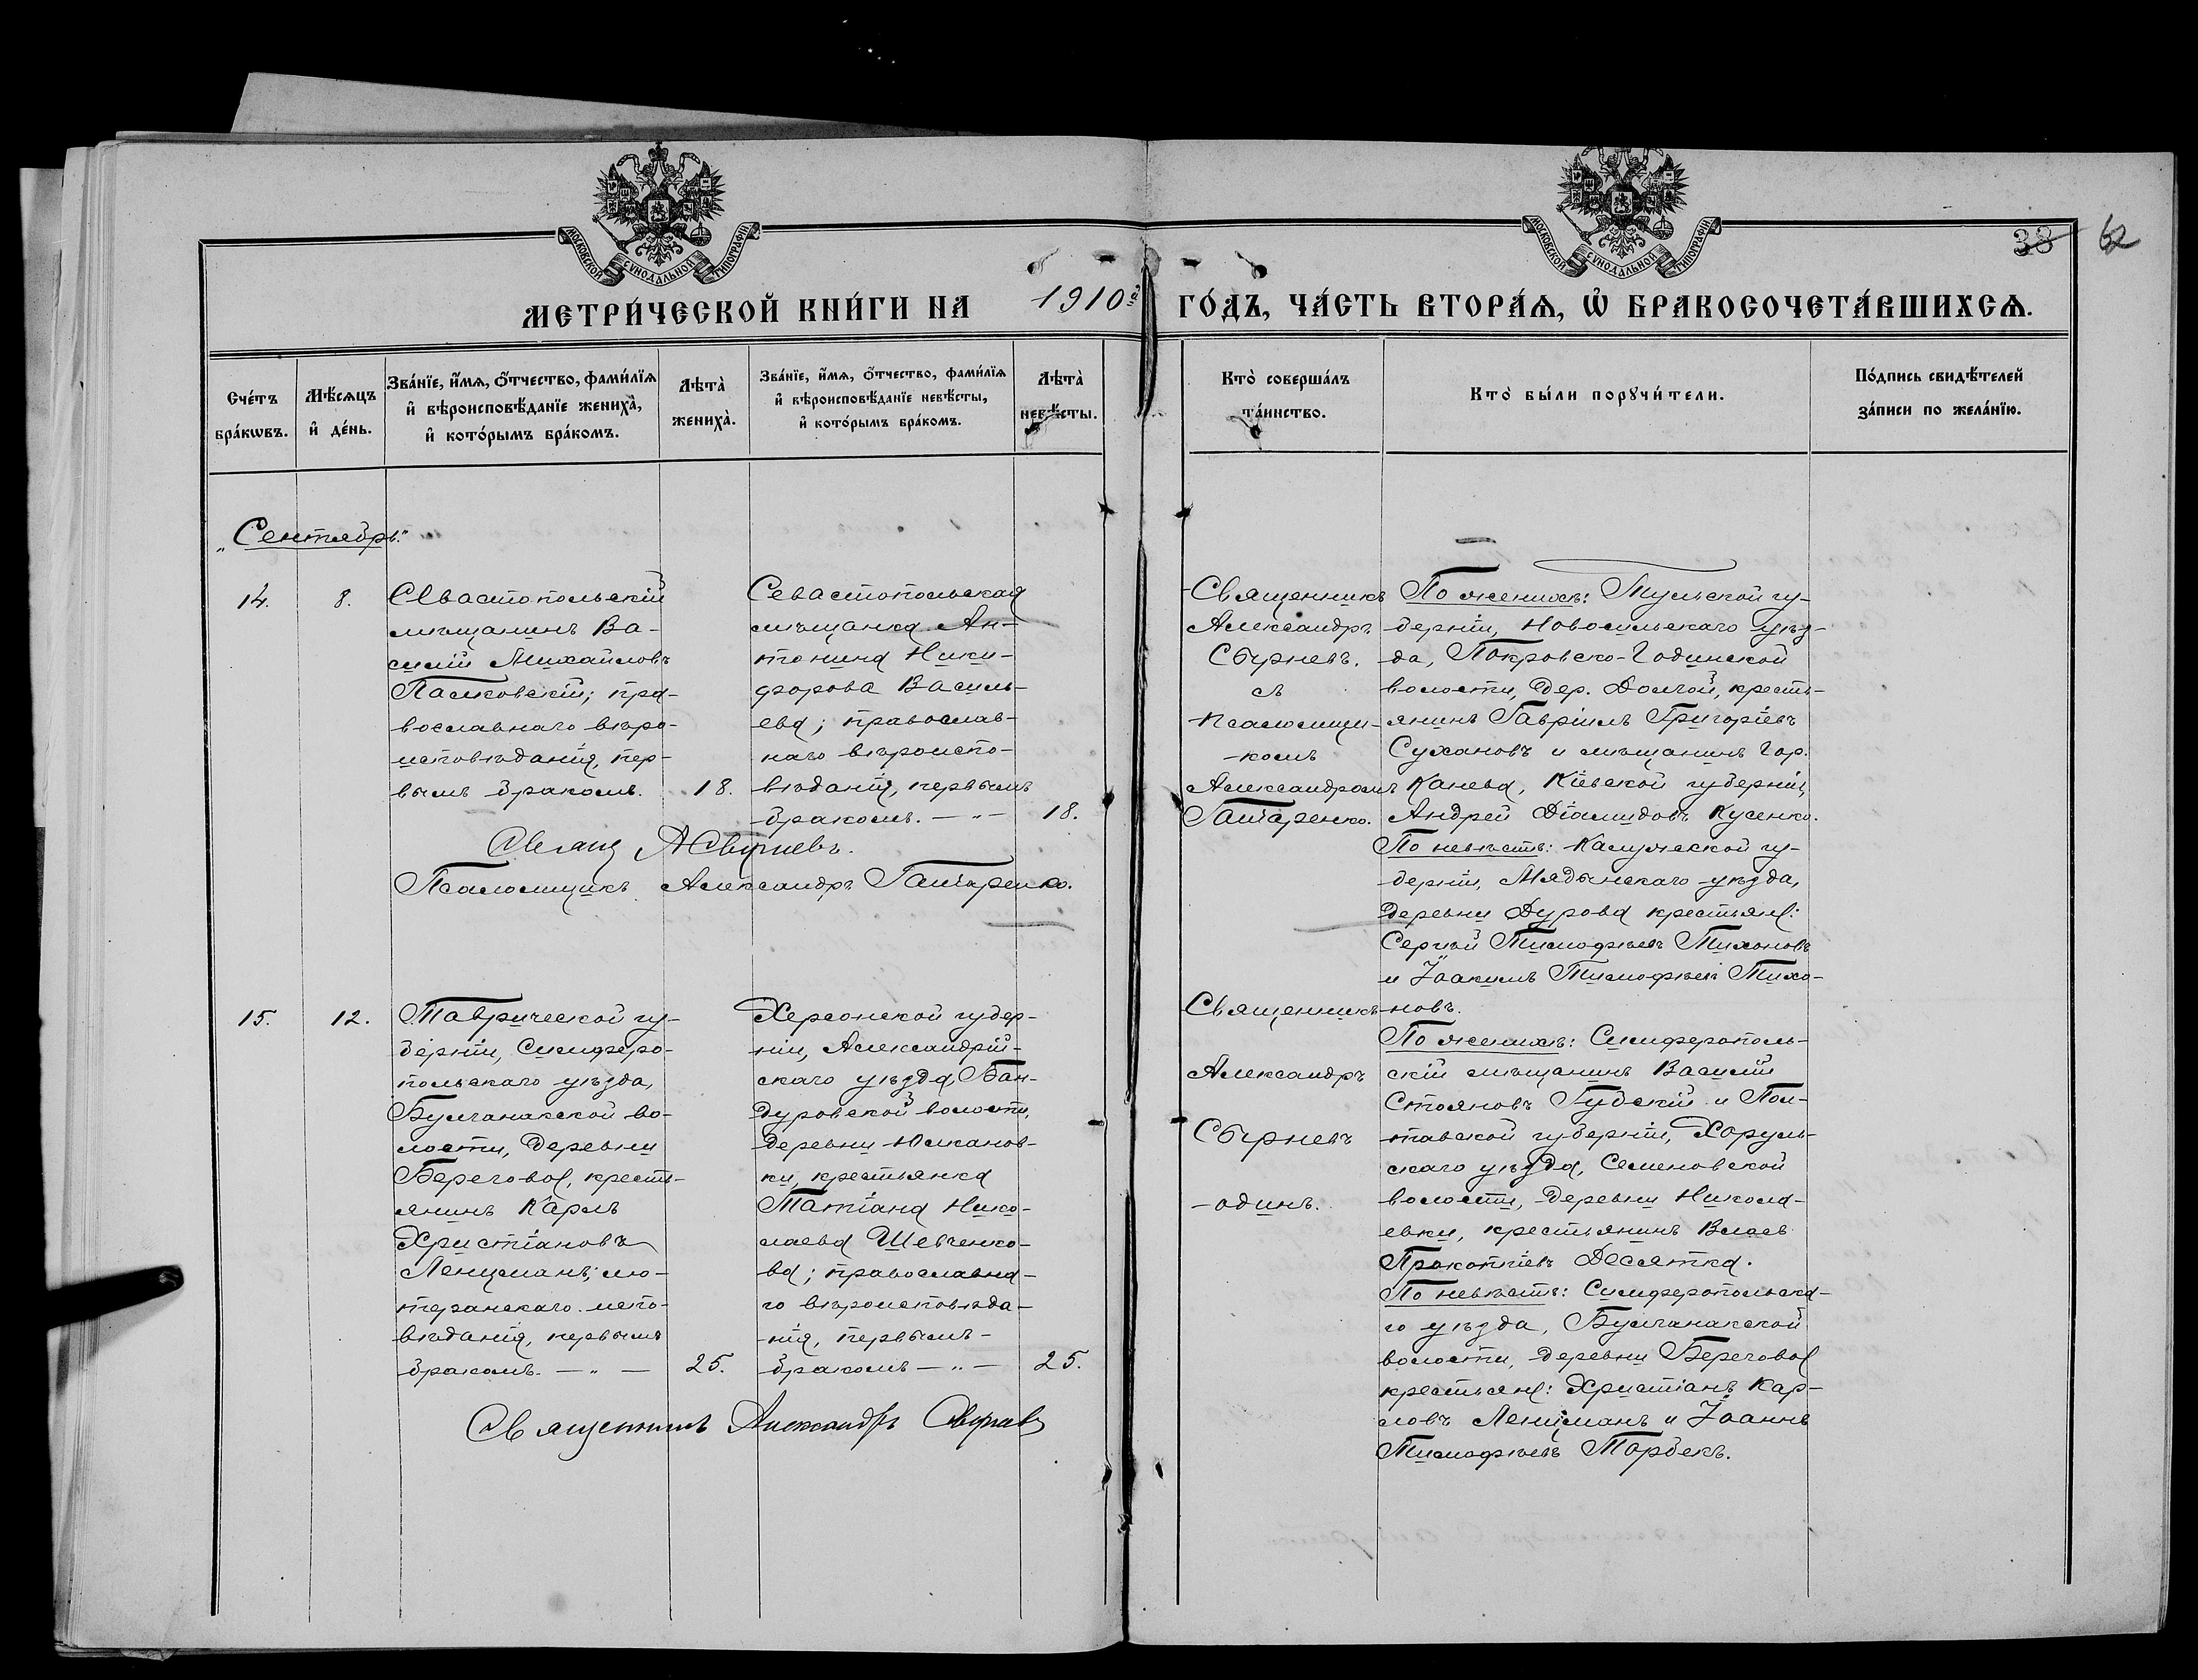 МОСКОВСКОЙ СѴНОДАЛЬНОЙ ТИПОГРАФІИ
МОСКОВСКОЙ СѴНОДАЛЬНОЙ ТИПОГРАФІИ
38 62
МЕТРИ́ЧЕСКОЙ КНИ́ГИ НА 1910 г. ГО́ДЪ, ЧА́СТЬ ВТОРА́Ѧ, Ѡ҆ БРАКОСОЧЕТА́ВШИХСѦ.
Сче́тъ бра́кѡвъ.
Мѣ́сѧцъ и҆ де́нь.
Зва́нїе, и҆́мѧ, ѻ҆́тчество, фами́лїѧ
и҆ вѣроисповѣ́данїе жениха̀,
и҆ кото́рымъ бра́комъ.
Лѣта̀ жениха̀.
Зва́нїе, и҆́мѧ, ѻ҆́тчество, фами́лїѧ
и҆ вѣроисповѣ́данїе невѣ́сты,
и҆ кото́рымъ бра́комъ.
Лѣта̀ невѣ́сты.
Кто̀ соверша́лъ та́инство.
Кто̀ бы́ли порꙋчи́тели.
По́дпись свидѣ́телей
за́писи по жела́нїю.
„Сентябрь."
14.
8.
Севастопольскій
мѣщанинъ Ва-
силій Михайловъ
Пальковскій; пра-
вославнаго вѣро-
исповѣданія, пер-
вымъ бракомъ.
18.
Севастопольская
мѣщанка Ан-
тонина Ники-
форова Василь-
ева; православ-
наго вѣроиспо-
вѣданія, первымъ
бракомъ. — „ —
18.
Священникъ
Александръ
Свирневъ.
съ
псаломщи-
-комъ
Александромъ
Гатаренко.
По женихѣ: Тульской гу-
берніи, Новосильскаго уѣз-
да, Покровско-Годинской
волости, дер. Долгой, кресть-
янинъ Гавріилъ Григоріевъ
Сухановъ и мѣщанинъ гор.
Канева, Кіевской губерніи,
Андрей Діомидовъ Кусенко.
По невѣстѣ: Калужской гу-
берніи, Мядынскаго уѣзда,
деревни Дурова крестьяне:
Сергѣй Тимофѣевъ Тихоновъ
и Іоакимъ Тимофѣевъ Тихо-
новъ.
Псаломщикъ Александръ Гатаренко.
15.
12.
Таврической гу-
берніи, Симферо-
польскаго уѣзда,
Булганакской во-
лости, деревни
Береговое, кресть-
янинъ Карлъ
Христіановъ
Ленцманъ; лю-
теранскаго испо-
вѣданія, первымъ
бракомъ. — „ —
25.
Херсонской губер-
ніи, Александрій-
скаго уѣзда, Бан-
дуровской волости,
деревни Юлканов-
ки, крестьянка
Татіана Нико-
лаева Шевченко-
ва; православна-
го вѣроисповѣда-
-нія, первымъ-
бракомъ — „ —
25.
Священникъ
Александръ
Свирневъ
-одинъ.
По женихѣ: Симферополь-
скій мѣщанинъ Василій
Стояновъ Губскій и Пол-
тавской губерніи, Хоруль-
скаго уѣзда, Семеновской
волости, деревни Никола-
евки, крестьянинъ Власъ
Прокопіевъ Десятка.
По невѣстѣ: Симферопольска-
го уѣзда, Булганакской
волости, деревни Береговое
крестьяне: Христіанъ Кар-
ловъ Ленцманъ и Іоаннъ
Тимофѣевъ Торбекъ.
Священникъ Александръ Свирневъ